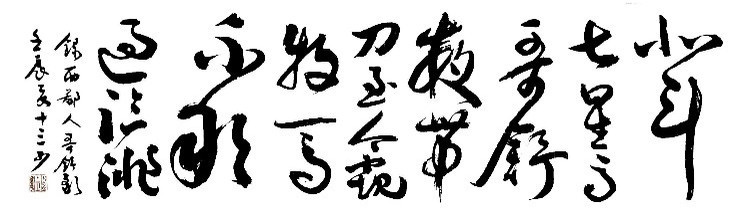 北斗
七星高
哥舒
夜帶
刀至今窺
牧馬
不敢
過臨洮
錄西鄙人哥舒歌
壬辰夏十三少